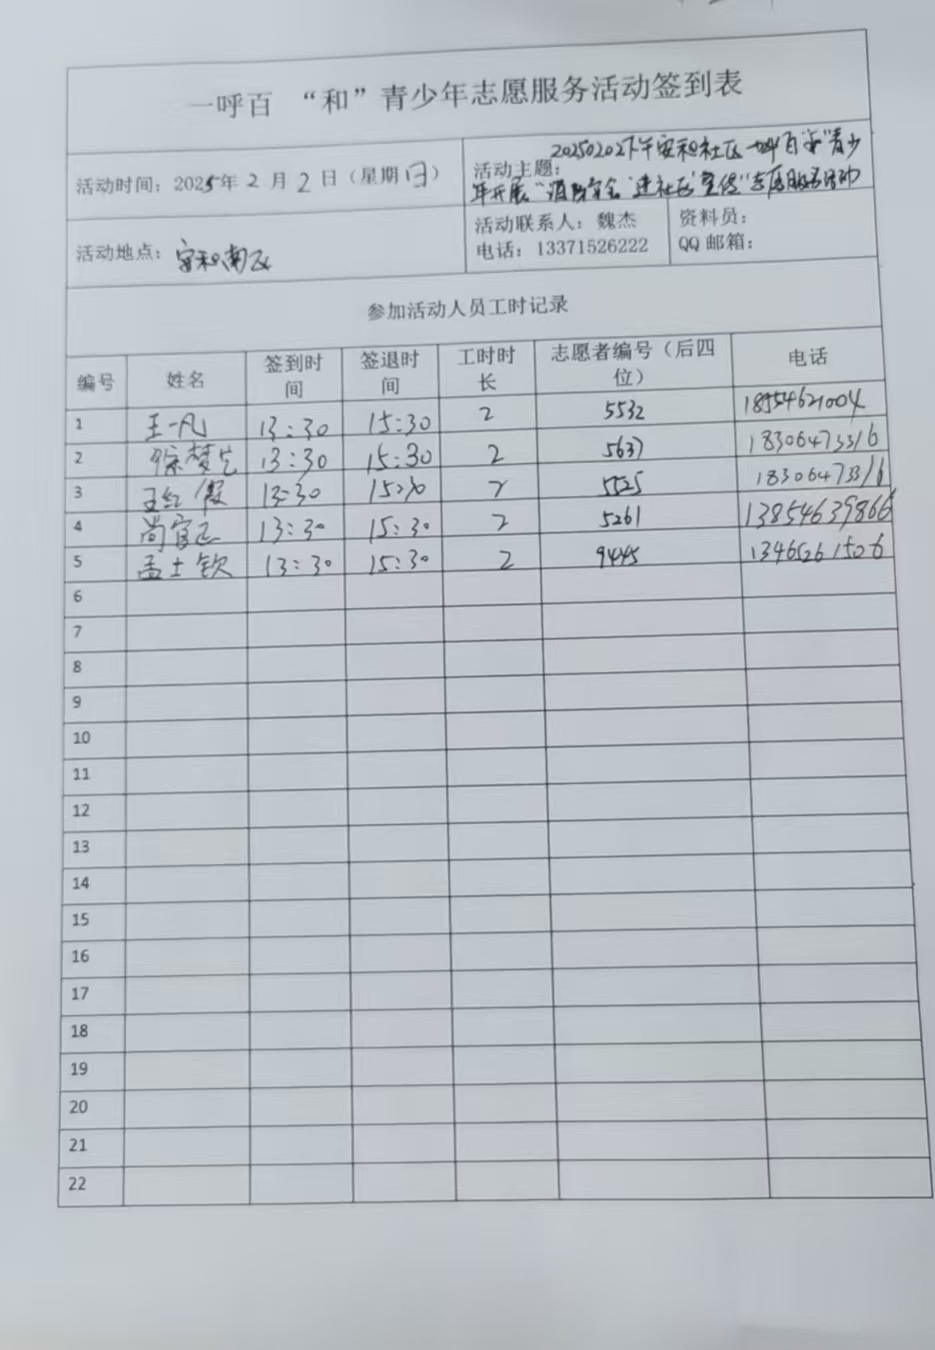 一呼百 “和”青少年志愿服务活动签到表
活动时间：2025年2月2日（星期日）
活动主题：20250202下午安和社区一呼百“和”青少
年开展“消防安全 进社区 宣传”志愿服务活动
活动地点：安和南区
活动联系人：魏杰
电话：13371526222
资料员：
QQ邮箱：
参加活动人员工时记录
编号 姓名 签到时间 签退时间 工时时长 志愿者编号（后四位） 电话
1 王一凡 13:30 15:30 2 5532 18554621004
2 徐梦 13:30 15:30 2 5637 18306473316
3 王红霞 13:30 15:30 2 5525 18306473316
4 尚官正 13:30 15:30 2 5261 13854639866
5 孟士钦 13:30 15:30 2 9445 13465261506
6
7
8
9
10
11
12
13
14
15
16
17
18
19
20
21
22